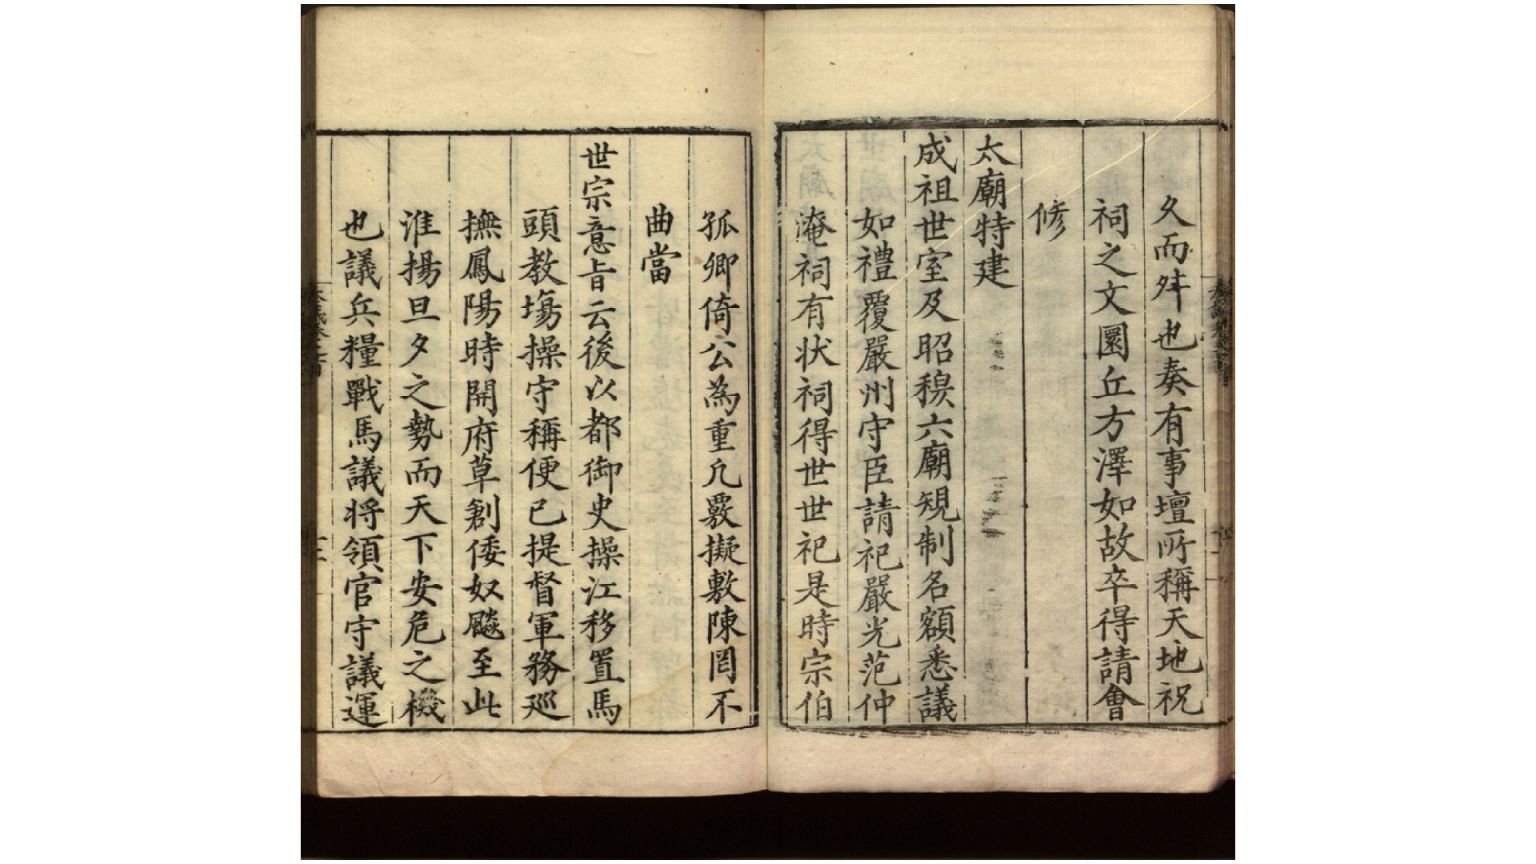 久而舛也奏有事壇所稱天地祝
祠之文圜丘方澤如故卒得請會
修
太廟特建
成祖世室及昭穆六廟規制名額悉議
如禮覆嚴州守臣請祀嚴光范仲
淹祠有狀祠得世世祀是時宗伯
孤卿倚公為重凢覈擬敷陳罔不
曲當
世宗意旨云後以都御史操江移置馬
頭教塲操守稱便已提督軍務廵
撫鳳陽時開府草創倭奴飈至此
淮揚旦夕之勢而天下安危之機
也議兵糧戰馬議将領官守議運